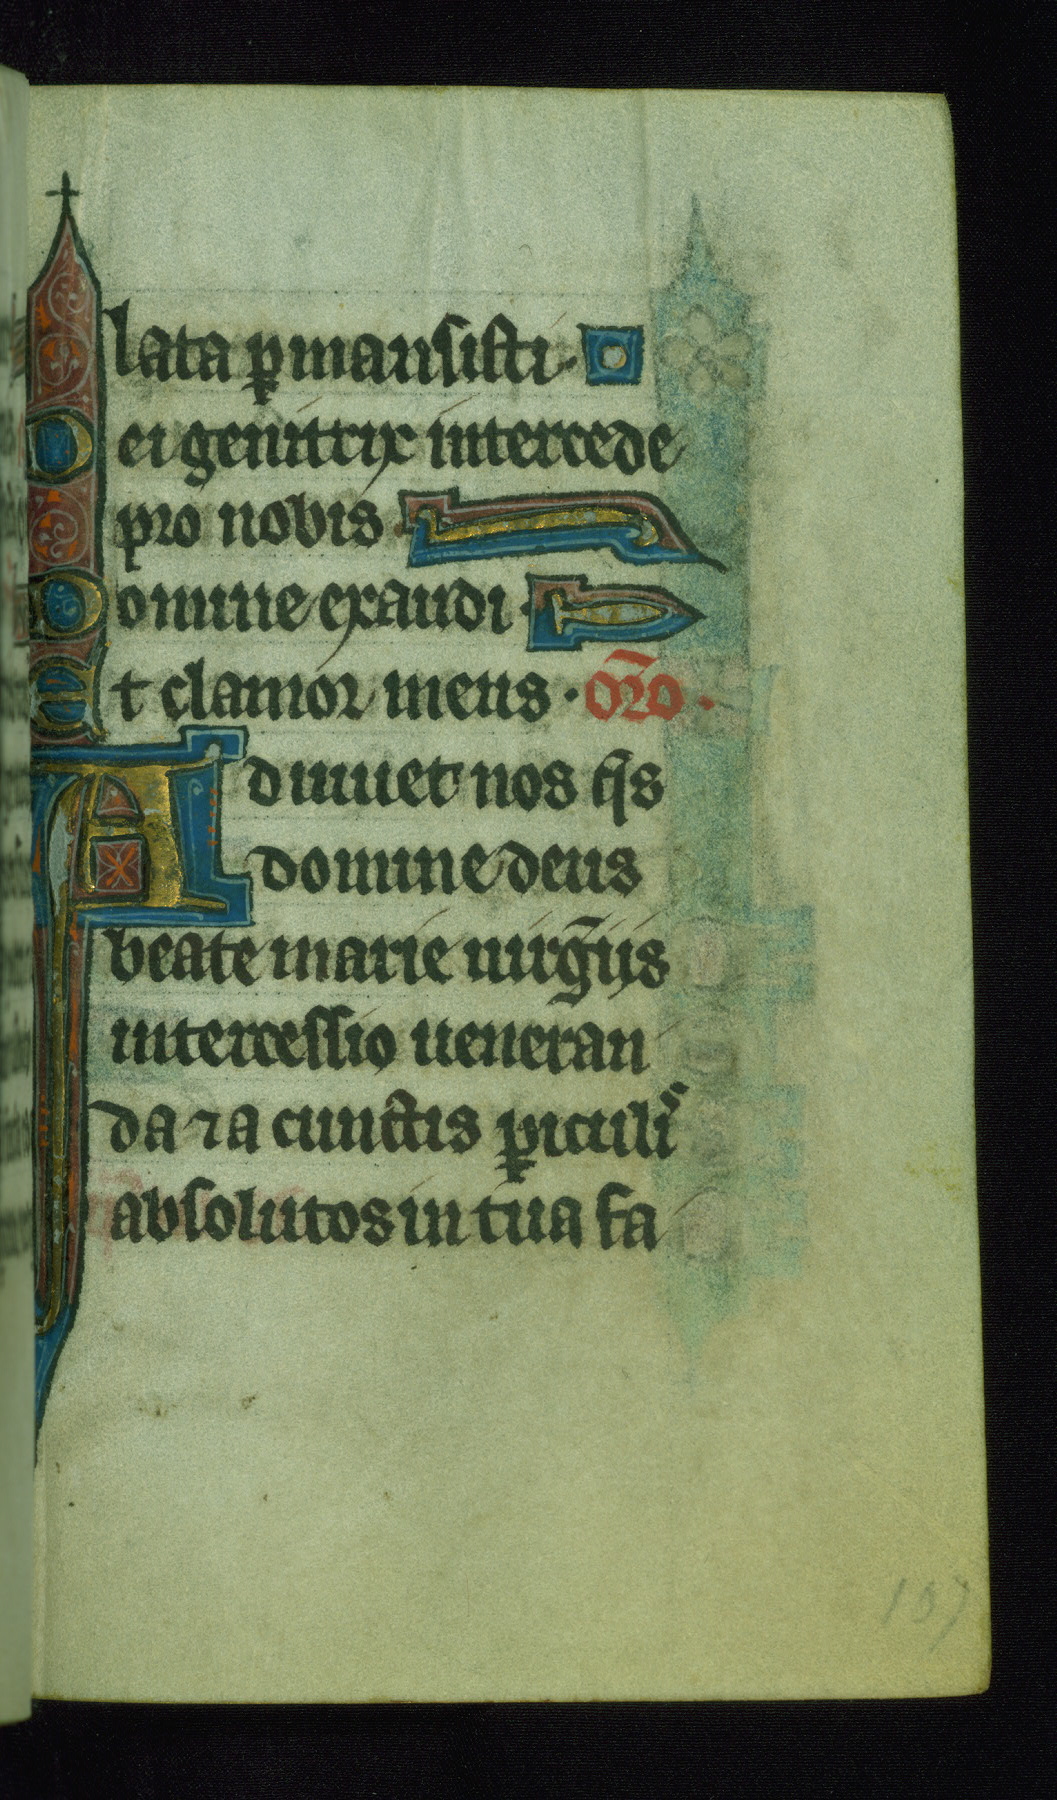 lata ꝑmansisti·
Dei genitrix intercede
pro nobis·
Domine exaudi·
Et clamor meus · or̃o ·
Adiuuet nos q̃s
domine deus
beate marie uirg̃iis
intercessio ueneran
da ⁊ a cunctis ꝑiculis
absolutos in tua fa
137